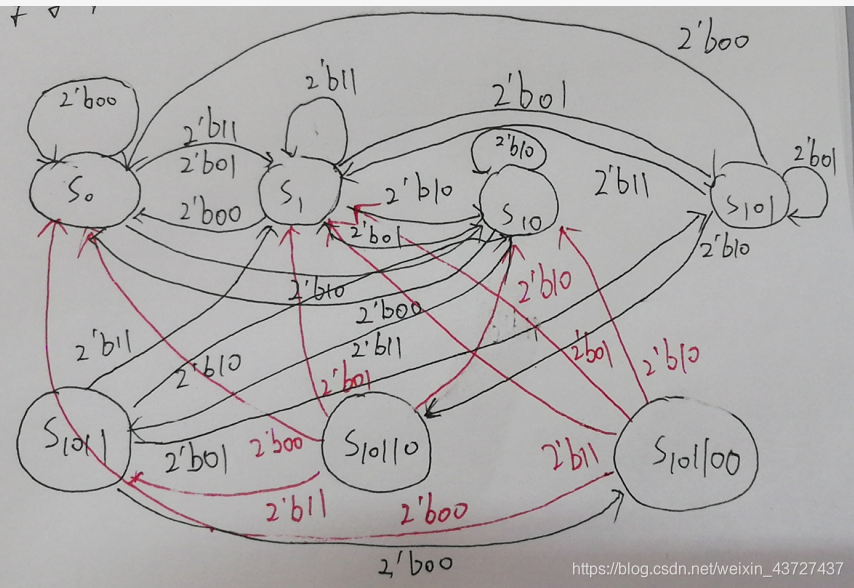 2'b00
2'b11
2'b00
2'b01
2'b11
2'b01
2'b01
2'b10
2'b10
2'b11
S0
S1
S10
S101
2'b00
2'b01
2'b10
2'b10
2'b10
2'b00
2'b11
2'b11
2'b01
2'b10
2'b10
2'b01
S1011
S10110
S101100
2'b01
2'b00
2'b11
2'b11
2'b00
2'b00
https://blog.csdn.net/weixin_43727437